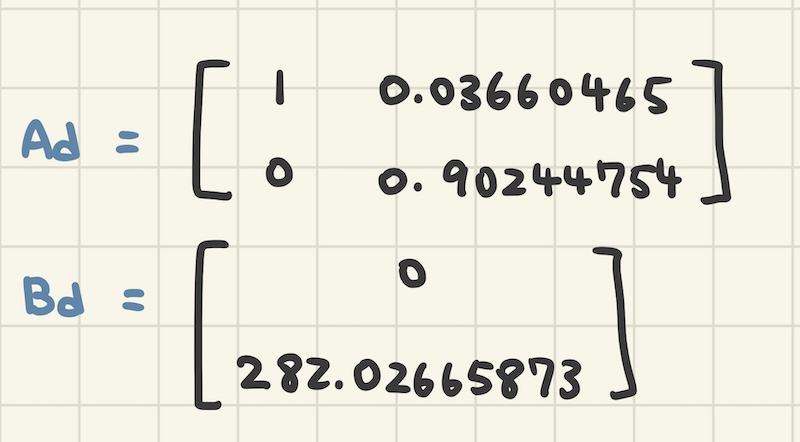 Ad = [ 1 0.03660465
0 0.90244754 ]
Bd = [ 0
282.02665873 ]